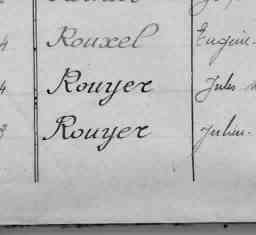 4 Rouxel Eugène
4 Rouyer Jules
3 Rouyer Julien